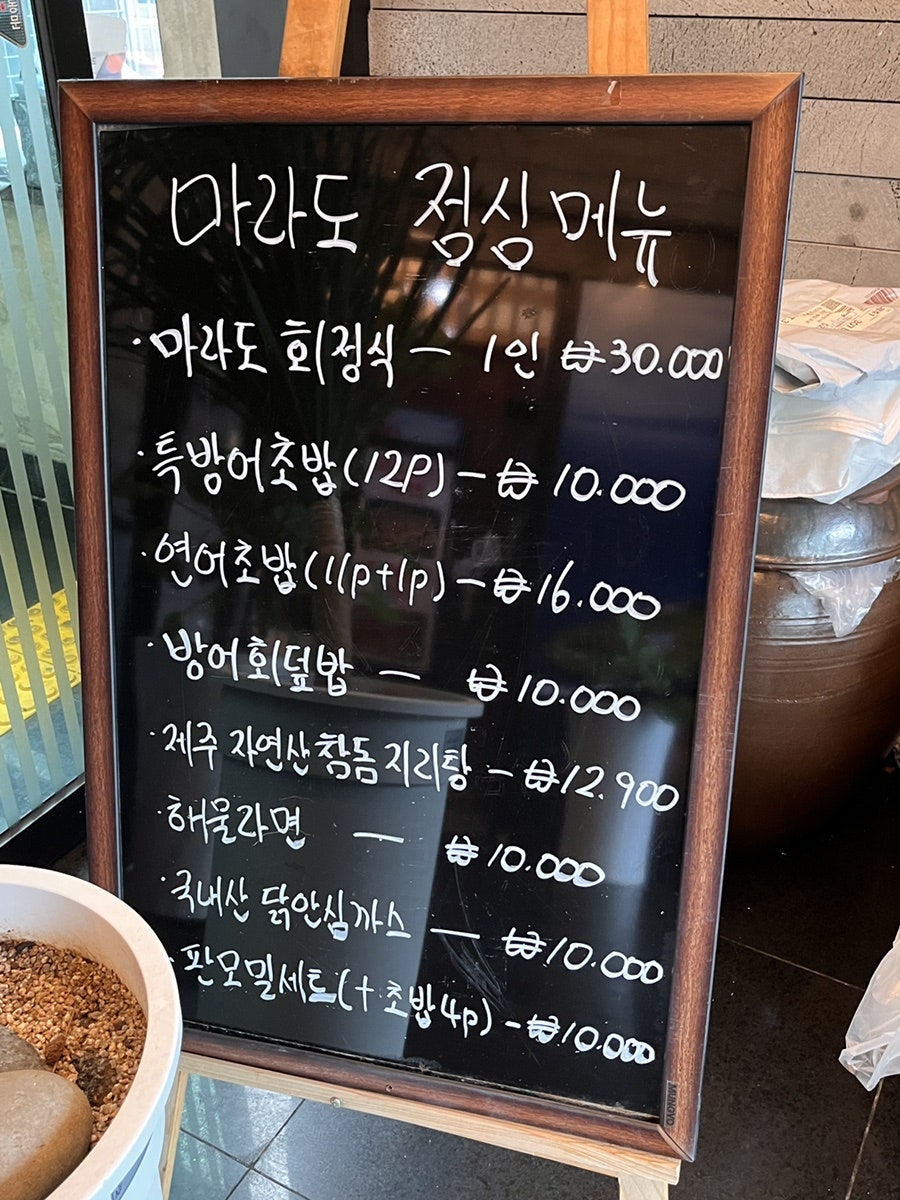 마라도 점심메뉴
·마라도 회정식 — 1인 ₩30.000
·특방어초밥(12P) - ₩10.000
·연어초밥(11p+1p) - ₩16.000
·방어회덮밥 — ₩10.000
·제주 자연산참돔지리탕 - ₩12.900
·해물라면 — ₩10.000
·국내산 닭안심까스 — ₩10.000
·판모밀세트(+초밥4p) - ₩10.000
MUNGYO